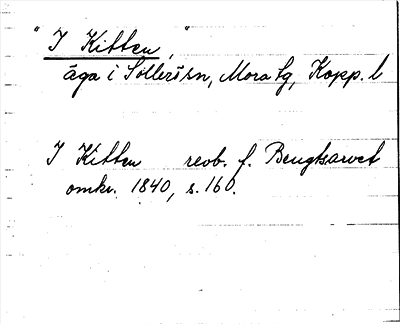 " I Kitten, "
äga i Sollerö sn, Mora tg, Kopp. l
I Kitten reob. f. Bengtsarvet
omkr. 1840, s. 160.